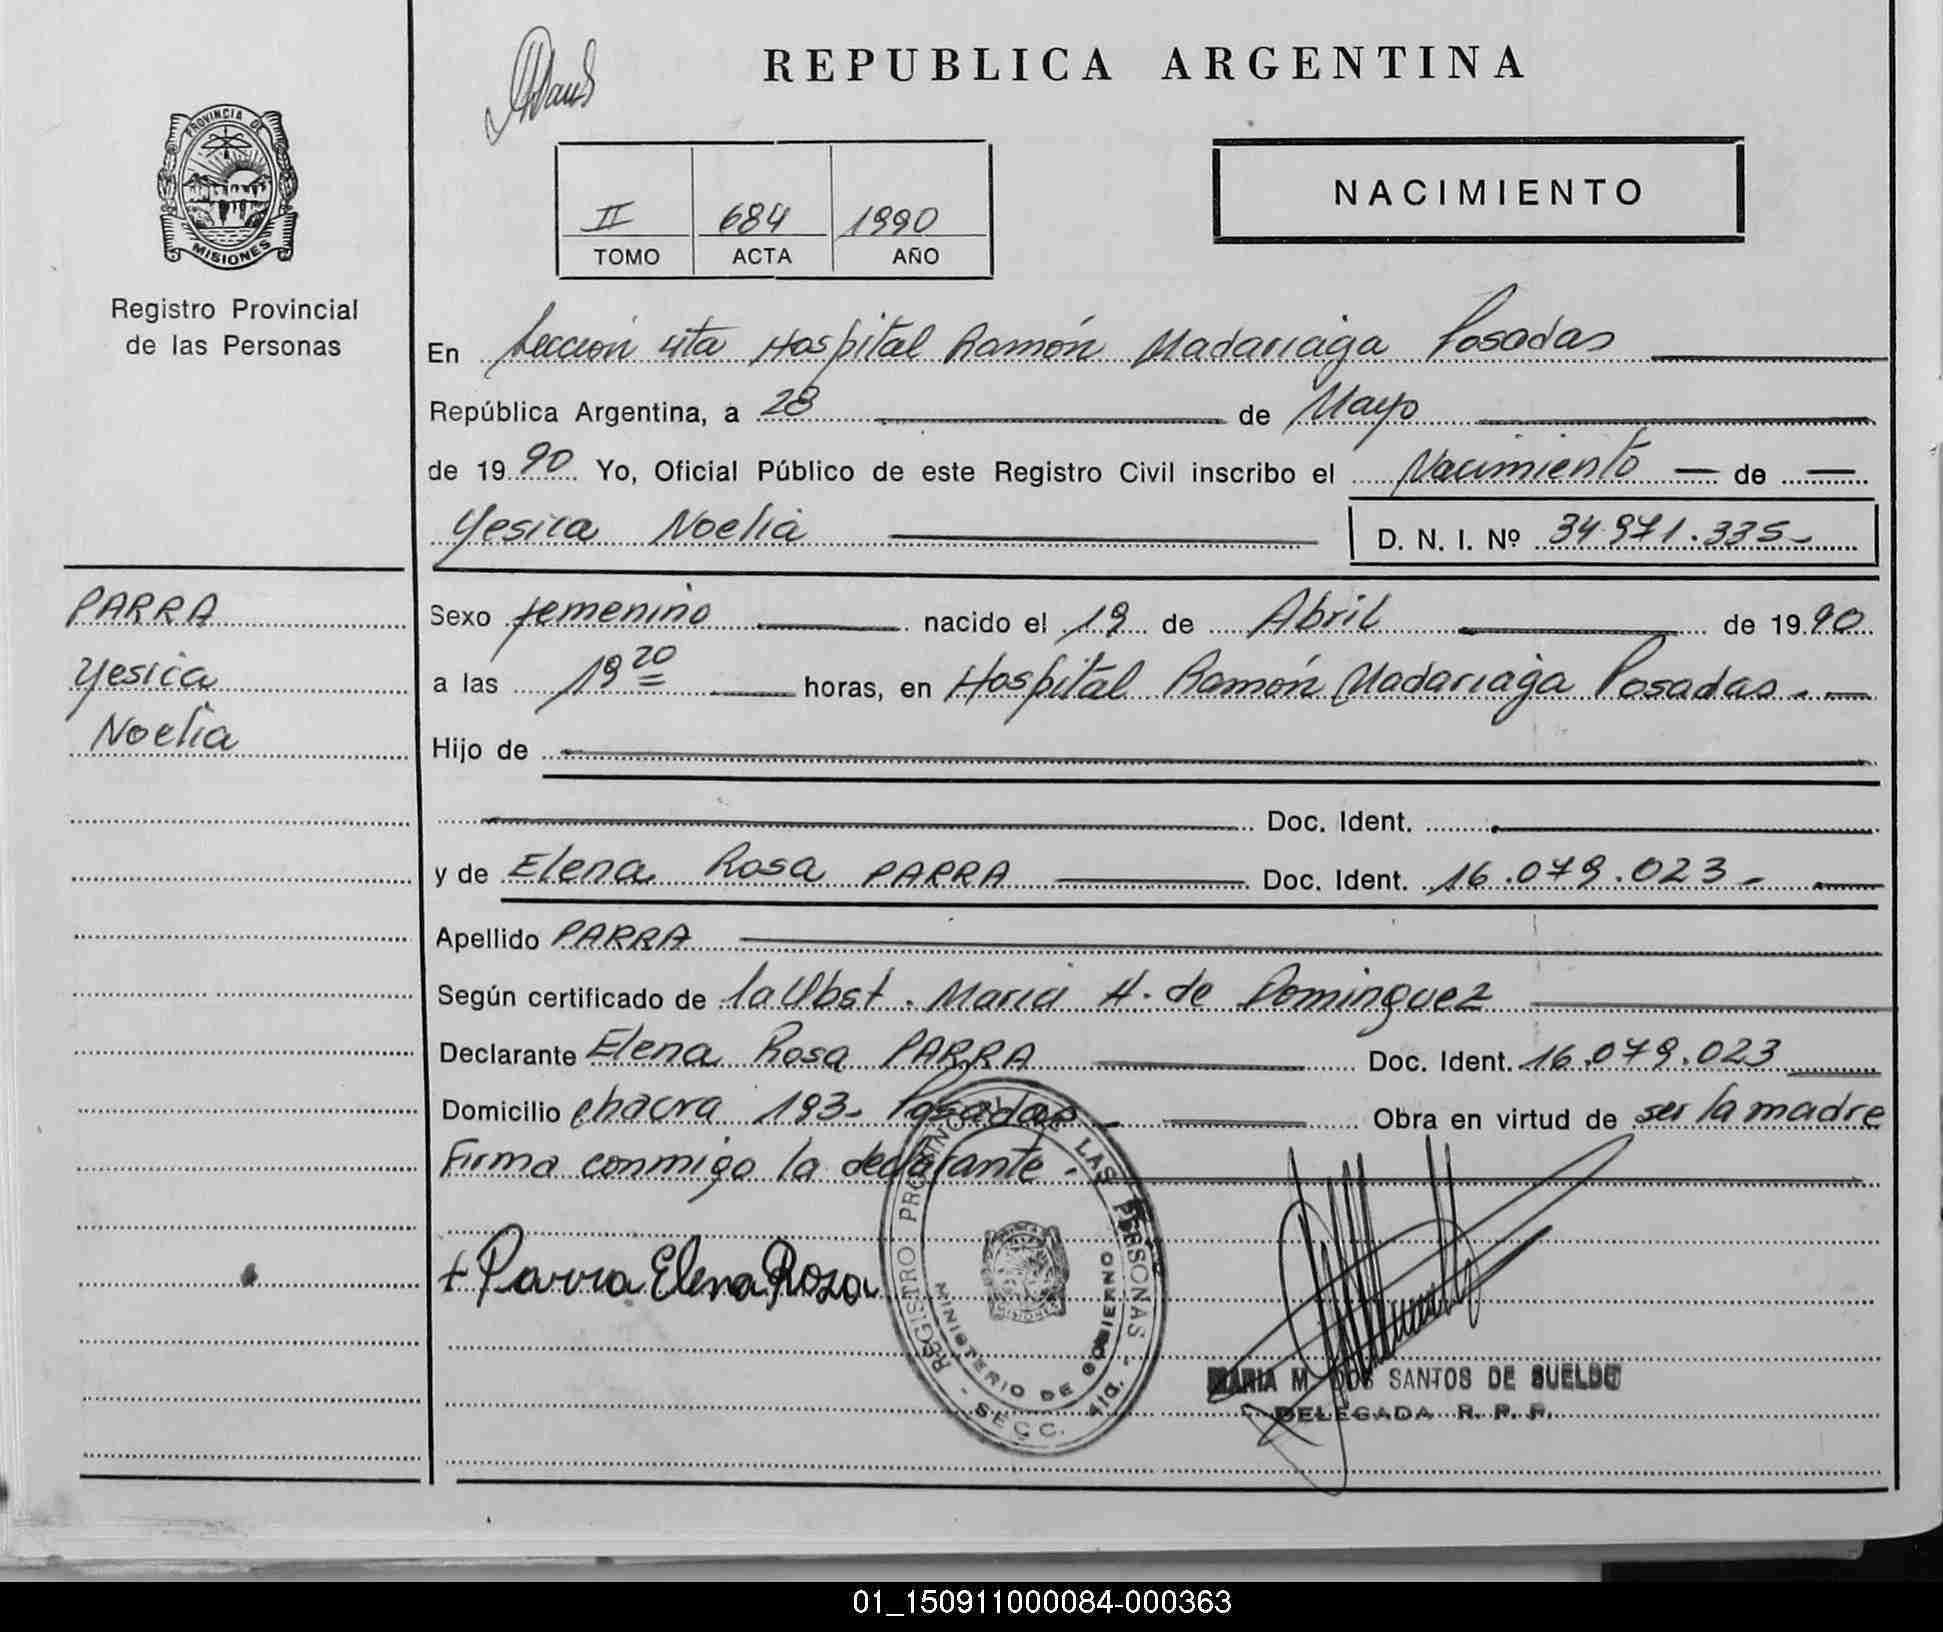 REPUBLICA ARGENTINA
PROVINCIA DE
MISIONES
Registro Provincial
de las Personas
NACIMIENTO
II 684 1990
TOMO ACTA AÑO
En Sección 4ta Hospital Ramón Madariaga Posadas
República Argentina, a 28 de Mayo
de 1990 Yo, Oficial Público de este Registro Civil inscribo el Nacimiento — de —
Yesica Noelia D. N. I. Nº 34.971.335-
PARRA
Yesica
Noelia
Sexo femenino nacido el 19 de Abril de 1990
a las 19 20 horas, en Hospital Ramón Madariaga Posadas. —
Hijo de
Doc. Ident.
y de Elena Rosa PARRA Doc. Ident. 16.079.023-
Apellido PARRA
Según certificado de la Obst. Maria H. de Dominguez
Declarante Elena Rosa PARRA Doc. Ident. 16.079.023
Domicilio chacra 193- Posadas Obra en virtud de ser la madre
Firma conmigo la declarante.
+ Parra Elena Rosa
REGISTRO PROVINCIAL DE LAS PERSONAS - SECC. 4ta. -
MINISTERIO DE GOBIERNO
MARIA M. DOS SANTOS DE SUELDO
DELEGADA R. P. P.
01_150911000084-000363